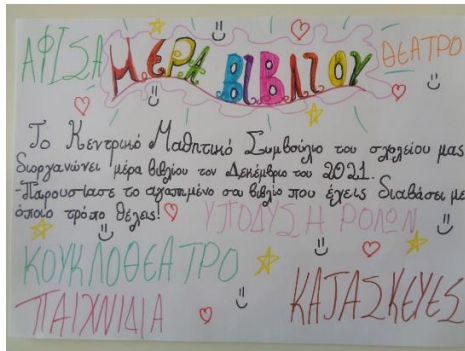 ΑΦΙΣΑ ΜΕΡΑ ΒΙΒΛΙΟΥ ΘΕΑΤΡΟ
Το Κεντρικό Μαθητικό Συμβούλιο του σχολείου μας
διοργανώνει μέρα βιβλίου τον Δεκέμβριο του 2021.
-Παρουσίασε το αγαπημένο σου βιβλίο που έχεις διαβάσει με
όποιο τρόπο θέλεις! ΥΠΟΔΥΣΗ ΡΟΛΩΝ
ΚΟΥΚΛΟΘΕΑΤΡΟ
ΠΑΙΧΝΙΔΙΑ ΚΑΤΑΣΚΕΥΕΣ